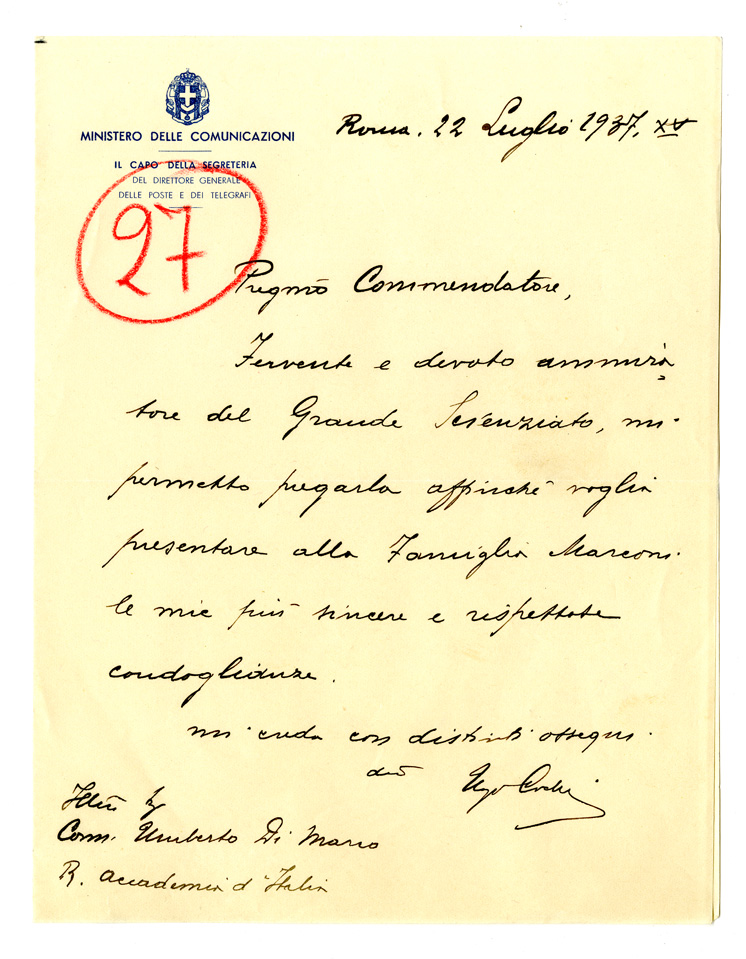 MINISTERO DELLE COMUNICAZIONI
IL CAPO DELLA SEGRETERIA
DEL DIRETTORE GENERALE
DELLE POSTE E DEI TELEGRAFI
Roma. 22 Luglio 1937. XV
27
Pregmo Commendatore,
Fervente e devoto ammira
tore del Grande Scienziato, mi
permetto pregarla affinché voglia
presentare alla Famiglia Marconi
le mie più sincere e rispettose
condoglianze.
mi creda con distinti ossequi.
Ugo
Comm. Umberto Di Marco
R. Accademia d'Italia